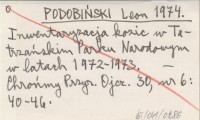 PODOBIŃSKI Leon 1974.
Inwentaryzacja kozic w Ta-
trzańskim Parku Narodowym
w latach 1972-1973. —
Chrońmy Przyr. Ojcz. 30, nr 6:
40-46.